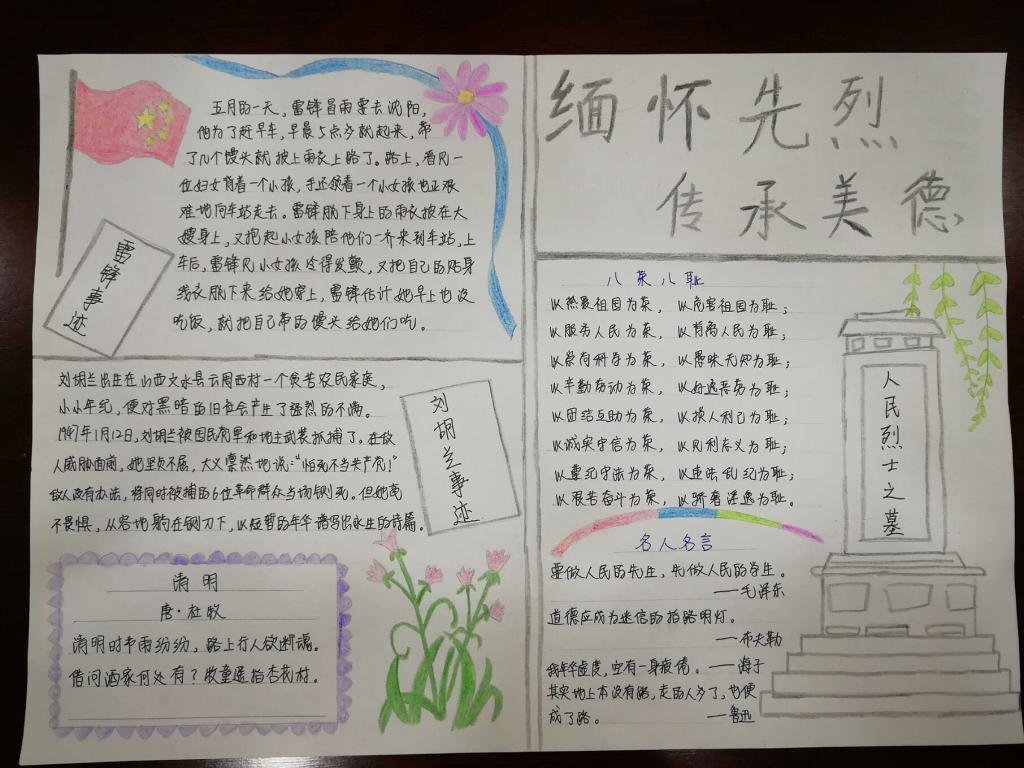 缅怀先烈
传承美德
五月的一天，雷锋冒雨要去沈阳，
他为了赶早车，早晨5点多就起来，带
了几个馒头就披上雨衣上路了。路上，看见一
位妇女背着一个小孩，手还领着一个小女孩也正艰
难地向车站走去。雷锋脱下身上的雨衣披在大
嫂身上，又抱起小女孩陪他们一齐来到车站，上
车后，雷锋见小女孩冷得发颤，又把自己的贴身
线衣脱下来给她穿上，雷锋估计她早上也没
吃饭，就把自己带的馒头给她们吃。
雷锋事迹
刘胡兰出生在山西文水县云周西村一个贫苦农民家庭，
小小年纪，便对黑暗的旧社会产生了强烈的不满。
1947年1月12日，刘胡兰被国民党军和地主武装抓捕了。在敌
人威胁面前，她坚贞不屈，大义凛然地说：“怕死不当共产党！”
敌人没有办法，将同时被捕的6位革命群众当场铡死。但她毫
不畏惧，从容地躺在铡刀下，以短暂的年华谱写出永生的诗篇。
刘胡兰事迹
清明
唐·杜牧
清明时节雨纷纷，路上行人欲断魂。
借问酒家何处有？牧童遥指杏花村。
八荣八耻
以热爱祖国为荣，以危害祖国为耻；
以服务人民为荣，以背离人民为耻；
以崇尚科学为荣，以愚昧无知为耻；
以辛勤劳动为荣，以好逸恶劳为耻；
以团结互助为荣，以损人利己为耻；
以诚实守信为荣，以见利忘义为耻；
以遵纪守法为荣，以违法乱纪为耻；
以艰苦奋斗为荣，以骄奢淫逸为耻。
名人名言
要做人民的先生，先做人民的学生。
——毛泽东
道德应成为迷信的指路明灯。
——布夫勒
我年华虚度，空有一身疲倦。——海子
其实地上本没有路，走的人多了，也便
成了路。——鲁迅
人民烈士之墓